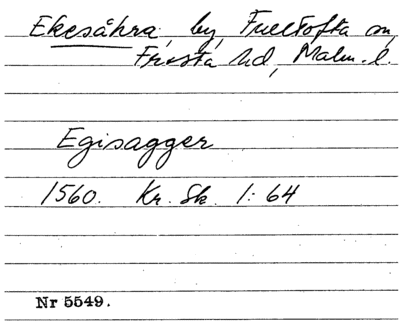 Ekesåkra, by, Fulltofta sn,
Frosta hd, Malm. l.
Egisagger
1560. Kr. Sk. 1:64
Nr 5549.